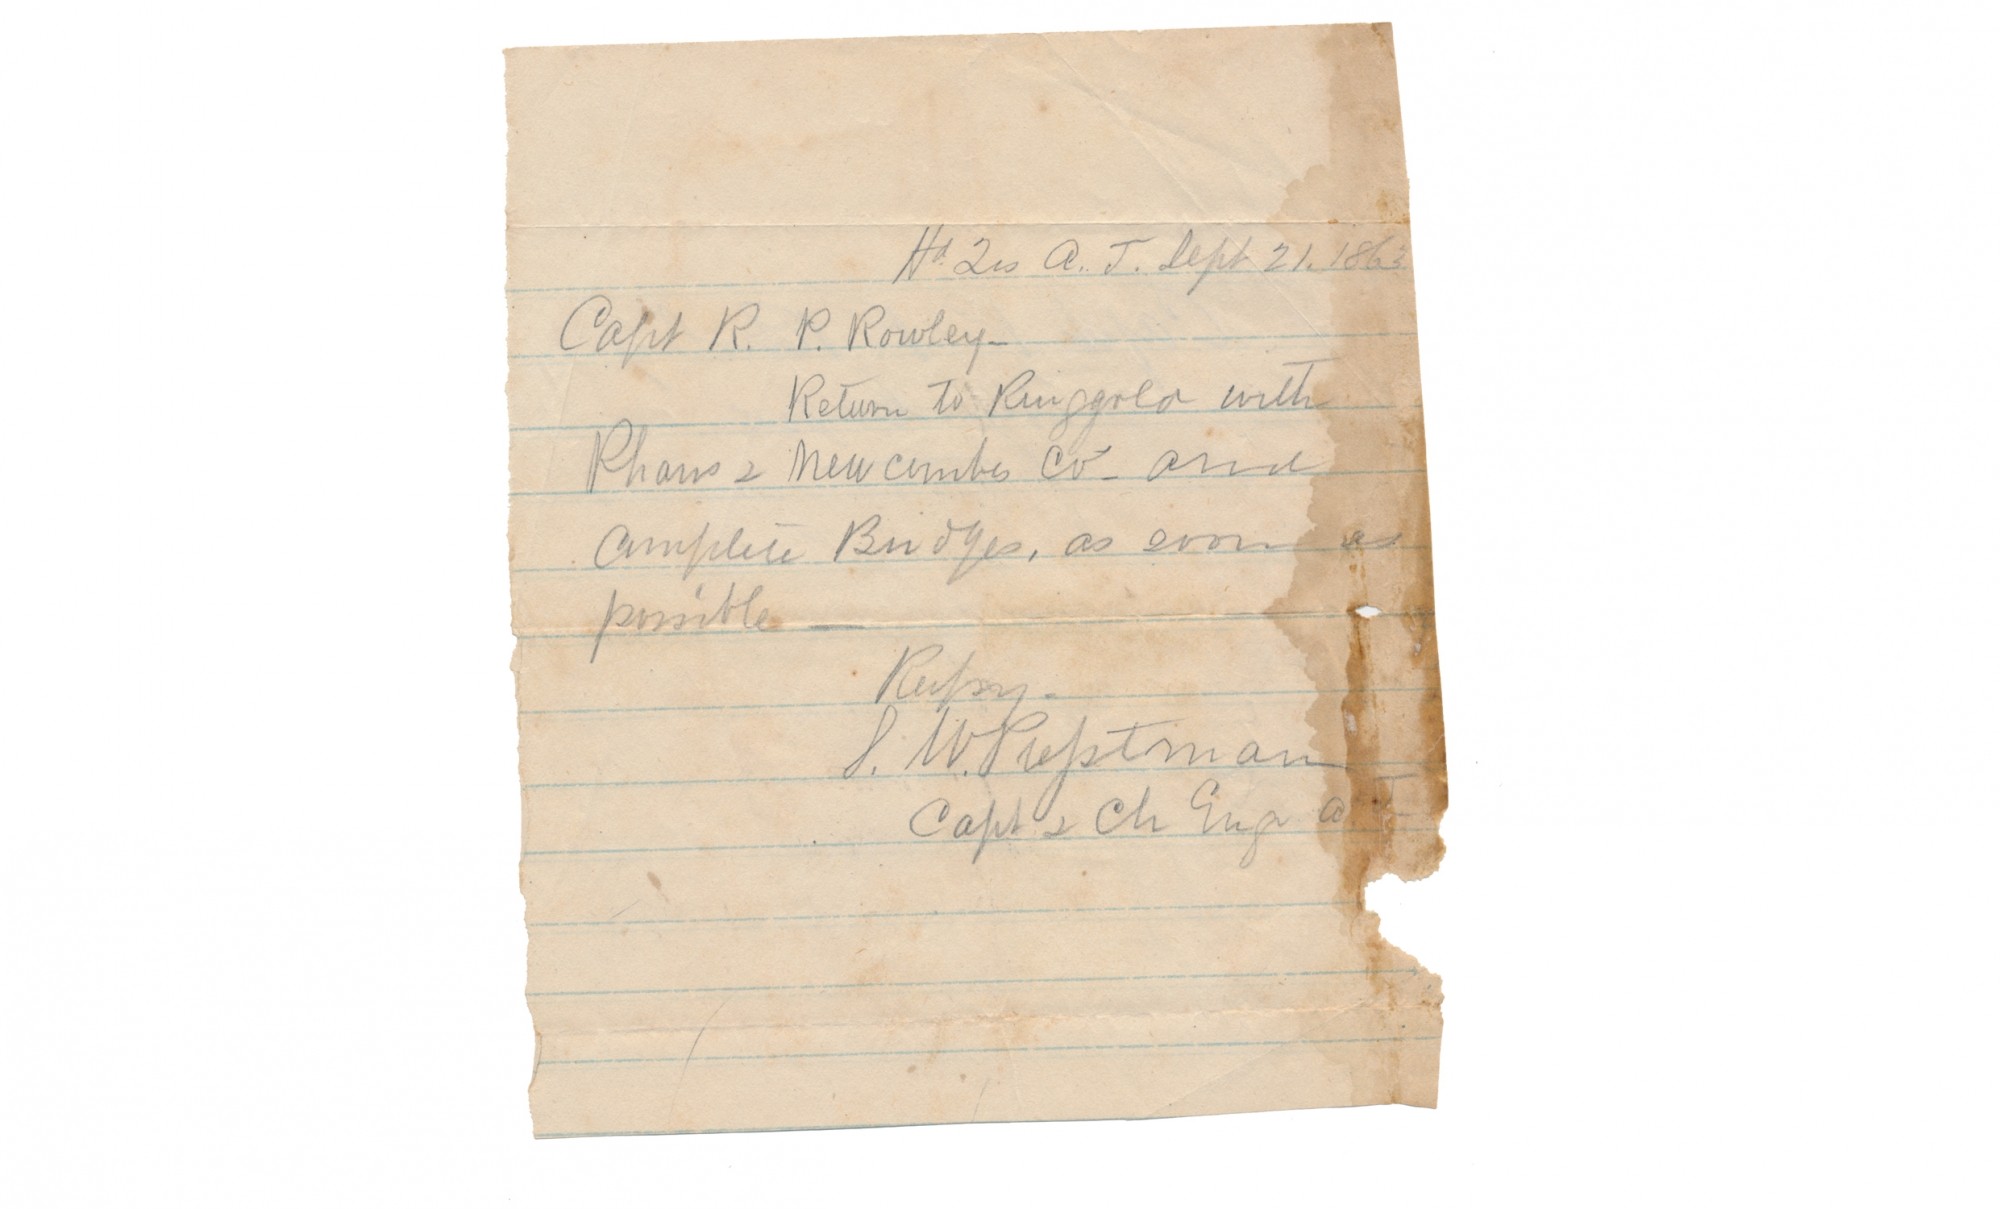 Hd Qrs A. T. Sept 21. 1863
Capt R. P. Rowley-
Return to Ringgold with
Pharrs & Newcombs Co- and
complete Bridges, as soon as
possible —
Respy-
S. W. Presstman
Capt & Ch Engr A T